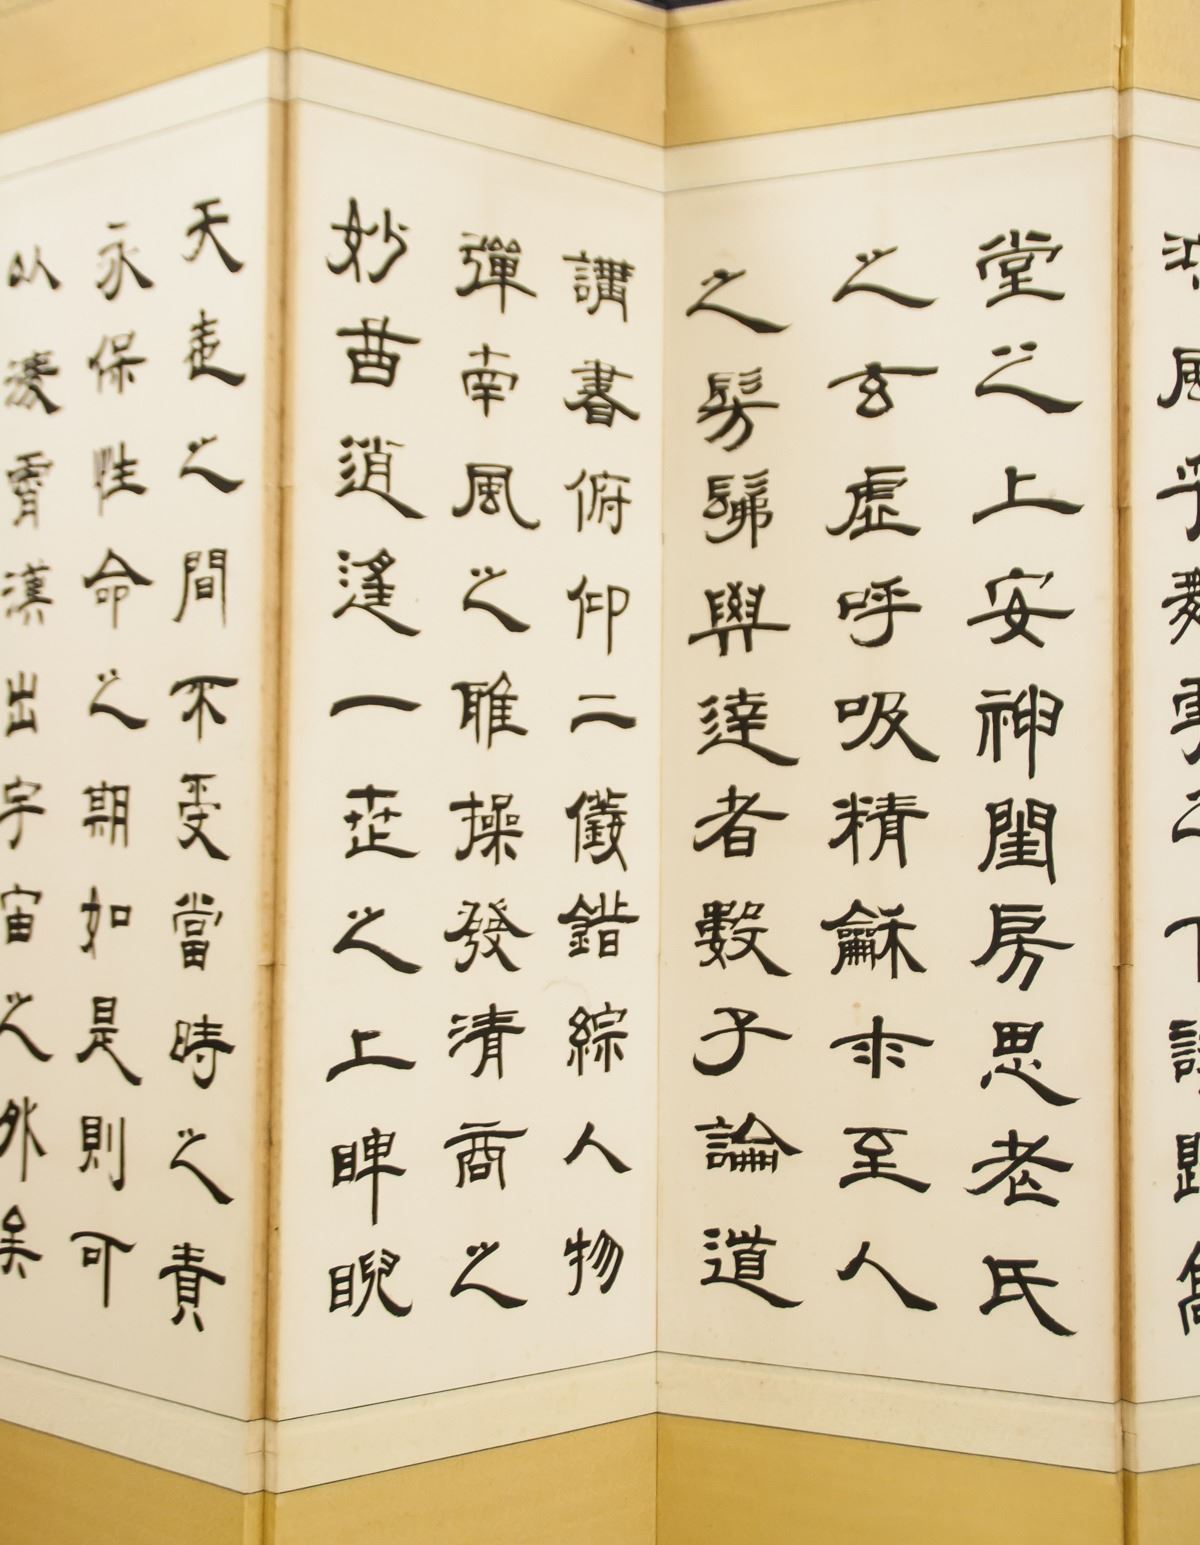 風乎舞雩之下詠歸高
堂之上安神閨房思老氏
之玄虛呼吸精龢求至人
之髣髴與達者數子論道
講書俯仰二儀錯綜人物
彈南風之雅操發清商之
妙曲逍遙一世之上睥睨
天地之間不受當時之責
永保性命之期如是則可
以淩霄漢出宇宙之外矣